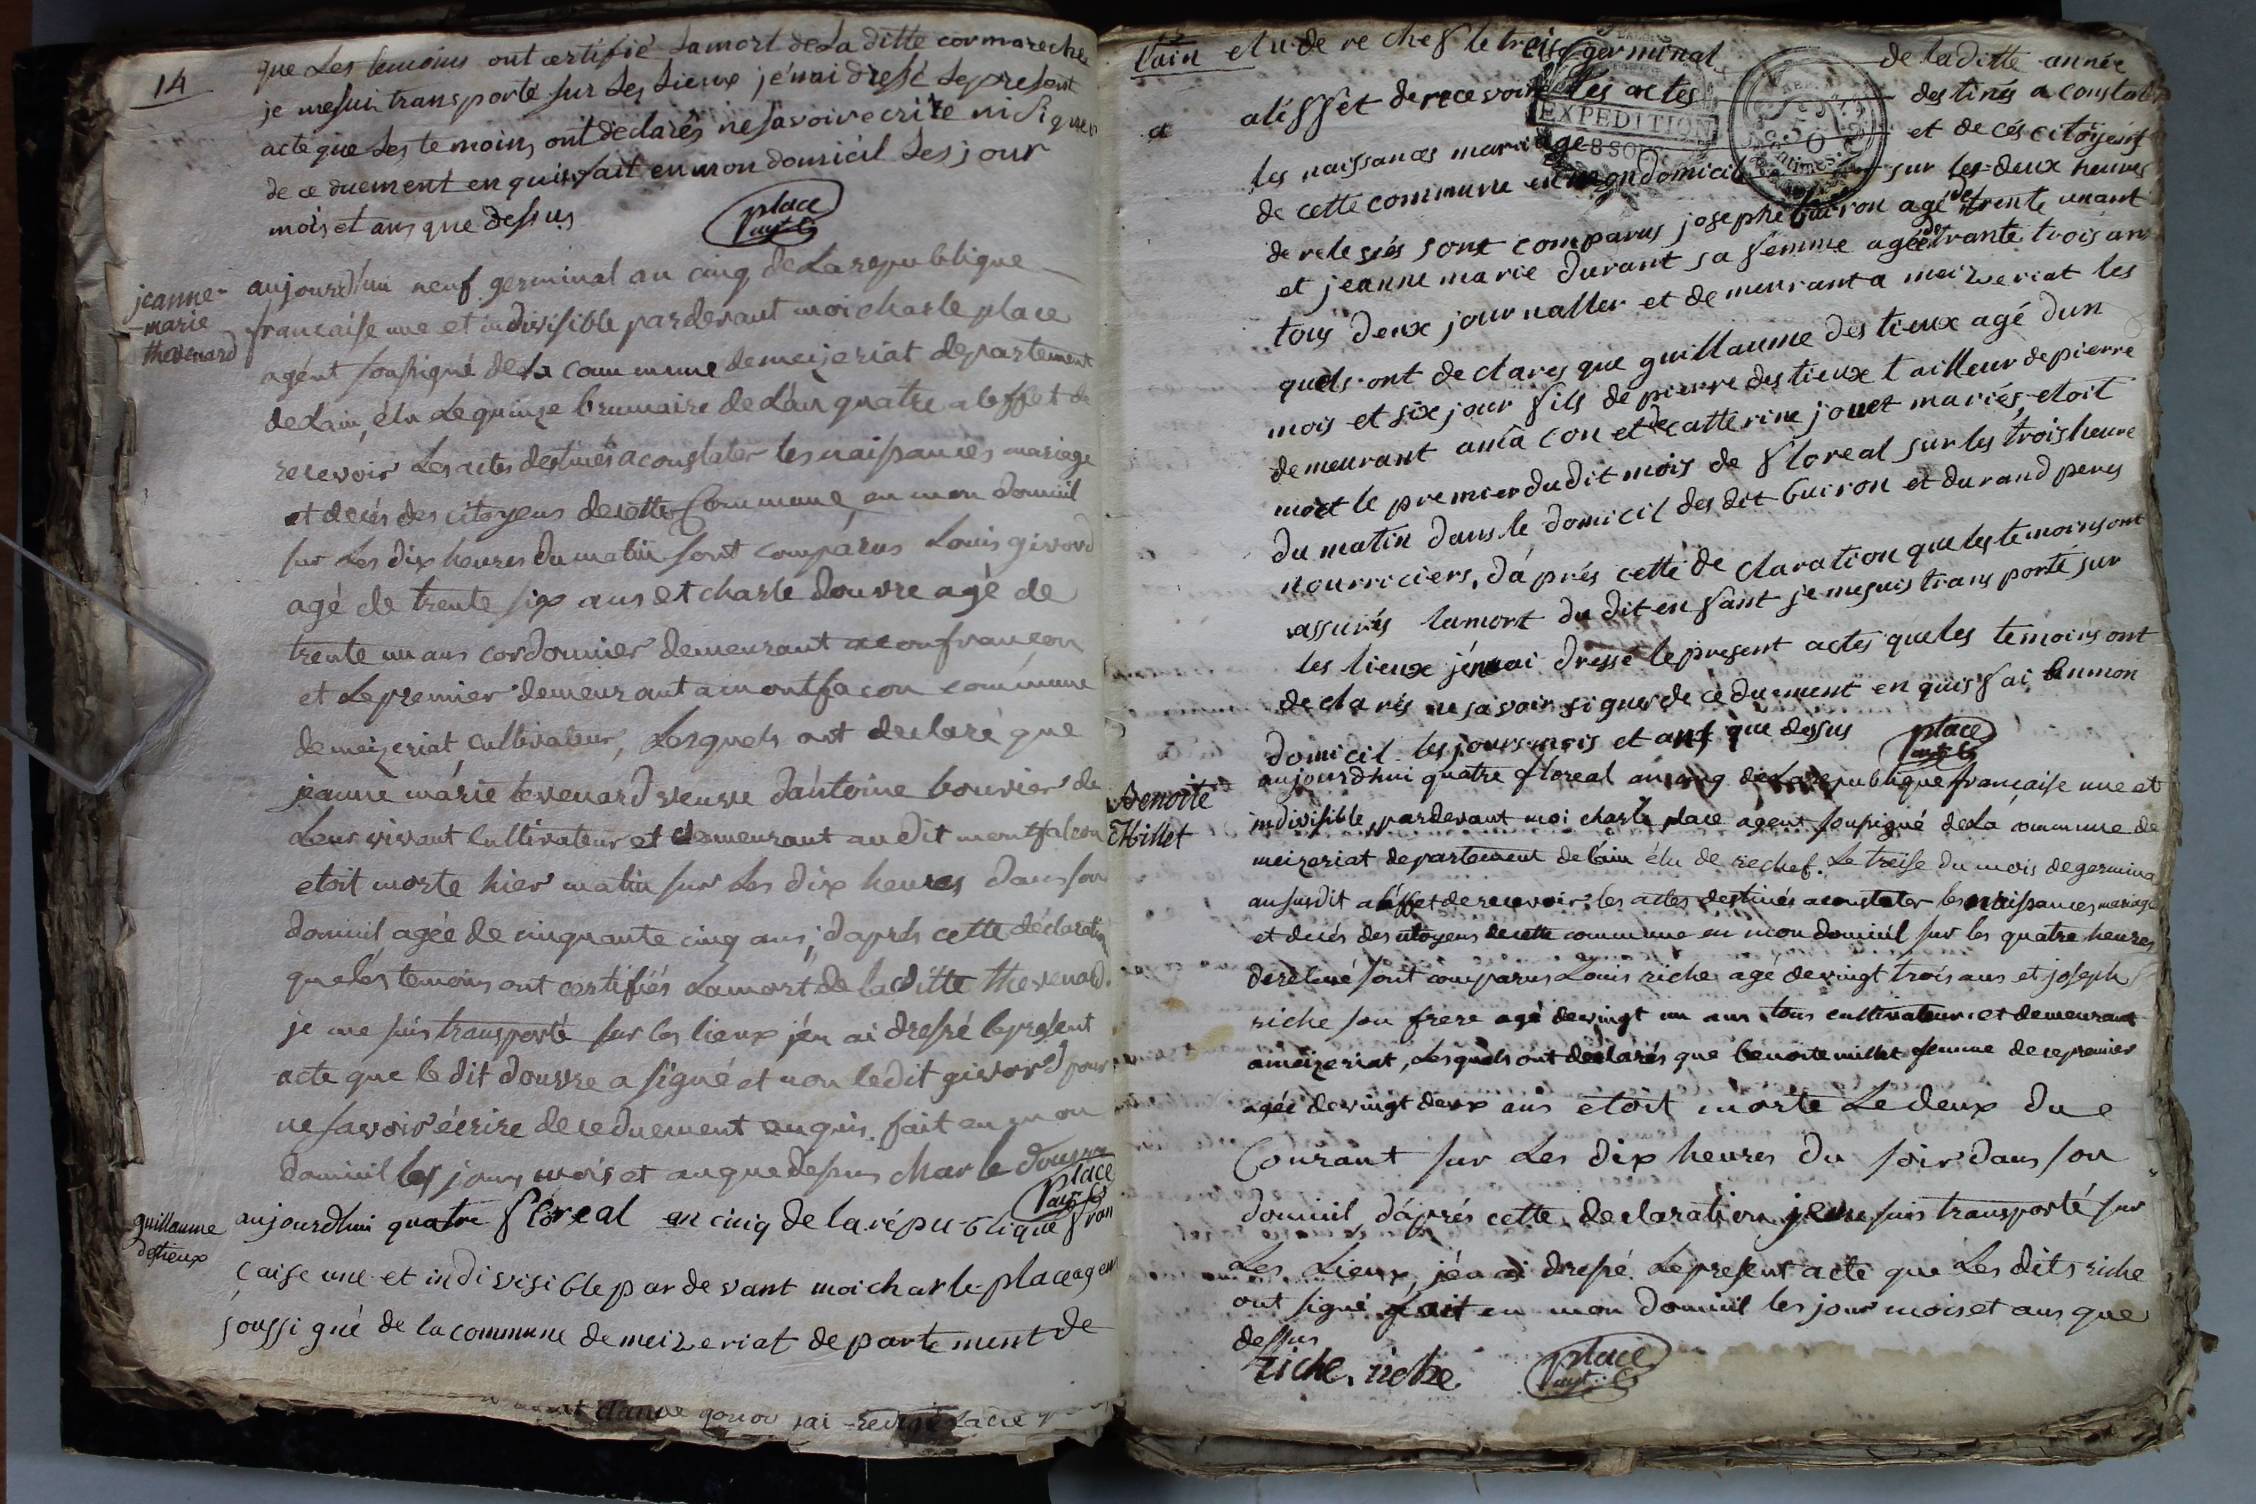 14
que Les temoins ont certifié Lamort deLa ditte cormareche
je mesuis transporté sur Les Lieux j'énai dressé Lepresent
acte que Les temoins ont declarés nesavoir ecrire ni signer
de ce duement enquis, fait en mon domicil Lesjour
mois et ans que dessus
place
agt
jeanne-
marie
thevenard
aujourd'hui neuf germinal an cinq deLa republique
francaise une et indivisible pardevant moi charle place
agent soussigné deLa commune demeizeriat departement
deLain, élu Lequinze brumaire deLan quatre aleffet de
recevoir Les actes destinés aconstater les naissances mariage
et decés des citoyens decette Commune, en mon domicil
sur Les dix heures Dumatin sont comparus Louis givord
agé de trente six ans et charle douvre agé de
trente un ans cordonnier demeurant aconfrancon
et Lepremier demeurant amontfacon commune
demeizeriat cultivateur, Lesquels ont declaré que
jeanne márie tevenard veuve d'antoine bouvier de
Leur vivant Cultivateur et demeurant au dit montfalcon
etoit morte hier matin sur Les dix heures dans son
domicil agée de cinquante cinq ans; d'aprés cette déclaration
que les temoins ont certifiés Lamort de la ditte thevenard.
je me suis transporté sur les lieux j'én ai dressé leprésent
acte que le dit douvre a signé et non ledit givord pour
ne savoir écrire de ceduement enquis. fait en mon
domicil les jours mois et an que dessus charle douvre
place
agt
guillaume
destieux
aujourdhui quatre floreal an cinq de la république fran
çaise une et indivisible par devant moi charle place agent
soussigné de la commune de meizeriat departement de
Lain elu de rechef le treise germinal de laditte année
a leffet de recevoir les actes destinés a constater
EXPEDITION
8 SOLS
les naissances mariage et decés citoyens
de cette commune en mon domicil sur les deux heures
de relevés sont comparus josephe buiron agé de trente un ant
et jeanne marie durant sa femme agée de trante trois an
tous deux journallier et demeurant a meizeriat les
quels ont declarés que guillaume destieux agé dun
mois et six jour fils de pierre destieux tailleur de pierre
demeurant amâcon et de catterine jouet mariés, etoit
mort le premier dudit mois de floreal sur les trois heure
du matin dans le domicil des dit buiron et durand peres
nourriciers, d'áprés cette declaration que les temoins ont
assurés lamort du dit enfant je mesuis transporté sur
les lieux j'énai dressé lepresent actes que les temoins ont
declarés ne savoir signer de ce duement enquis fai en mon
domicil les jours mois et ans que dessus
place
agt
Benoite
Millet
aujourdhui quatre floreal an cinq de La republique française une et
indivisible, pardevant moi charle place agent soussigné deLa commune de
meizeriat departement delain élu de rechef. Le treise du mois degermina
ansusdit aléffet de recevoir les actes destinés aconstater les naissances mariage
et decés des citoyens decette commune en mon domicil sur les quatre heures
derelevé sont comparus Louis riche agé devingt trois ans et joseph
riche son frere agé devingt un ans tous cultivateur et demeurant
ameizeriat, Lesquels ont declarés que benoite millet femme de ce premier
agée devingt deux ans etoit morte Le deux du
Courant sur Les dix heures du soir dans son
domicil, d'áprés cette declaration je me suis transporté sur
Les Lieux, j'én ai dressé Lepresent acte que Les dits riche
ont signé fait en mon domicil les jour mois et ans que
dessus
riche. riche
place
agt